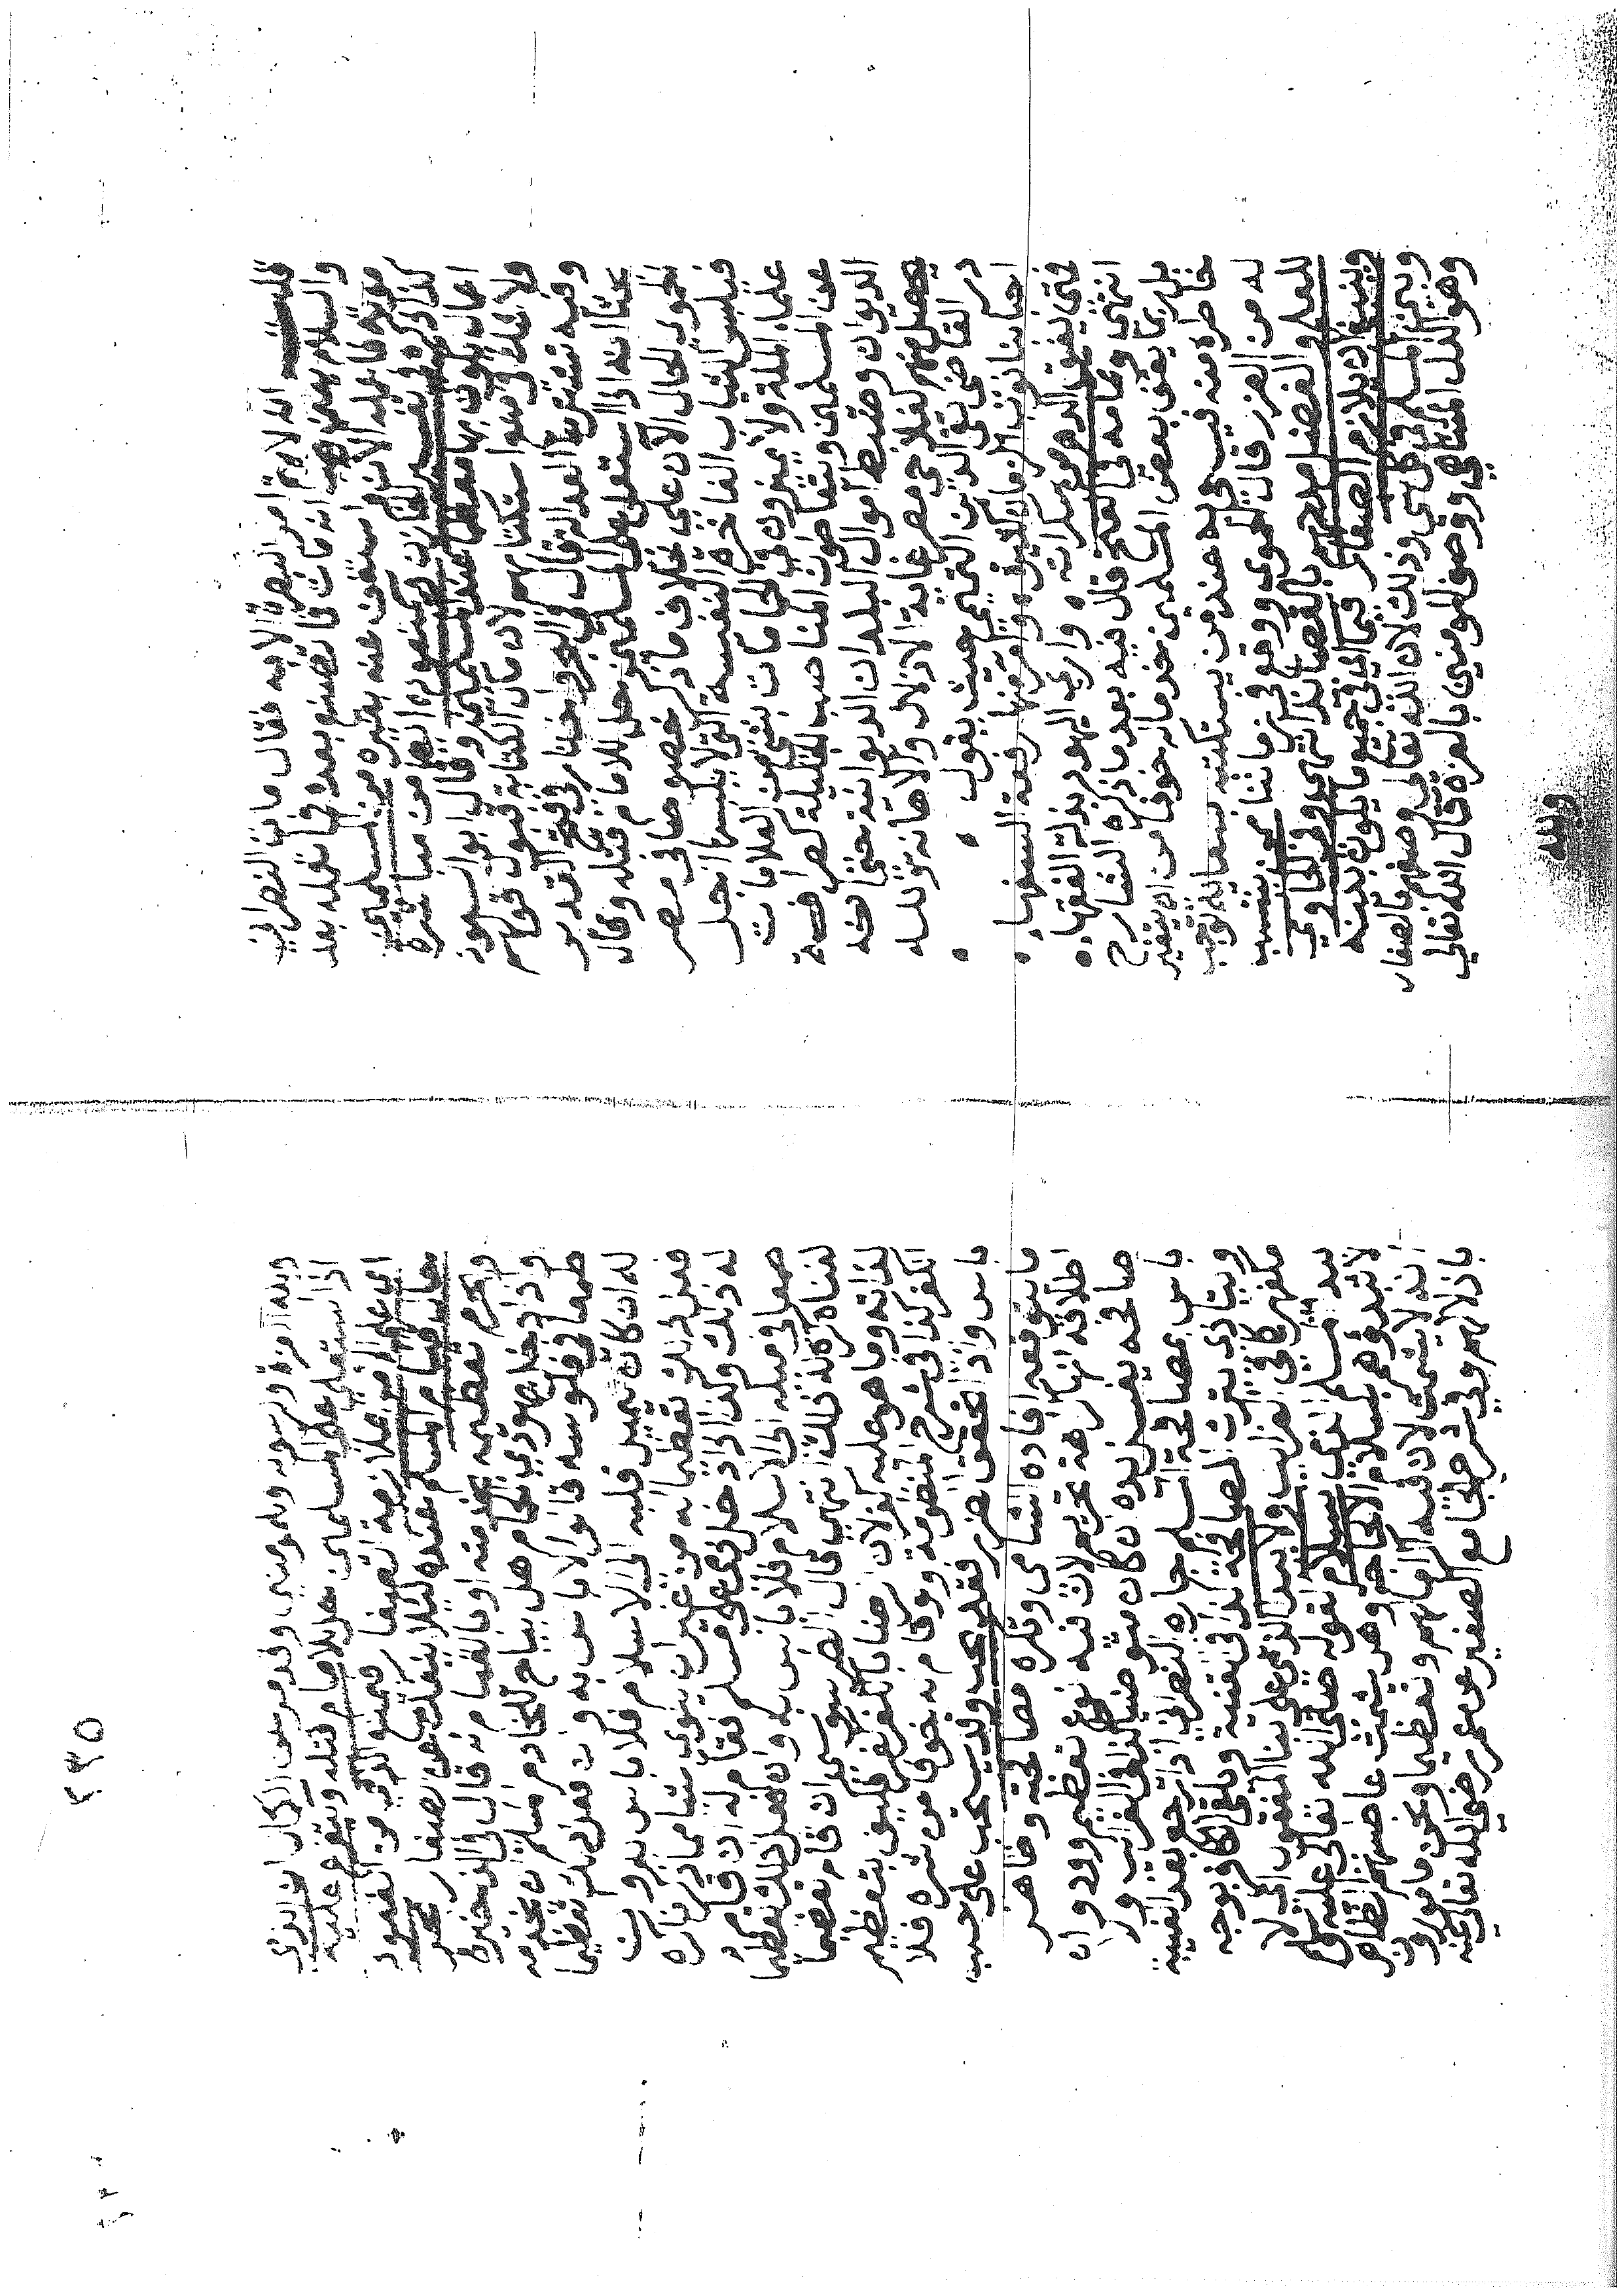 قلت انه لا يتم امر البصرة الا به فقال مات النصراني
والسلام يعني هب انه مات فما تصنع بعده فما تعمله بعد
موته فاعمله الان واستغن عنه بغيره من المسلمين
كذا ذكره في تفسير الخازن ويمنعون ايضا من مباشرة
اعمال يكون بها معظما عند المسلمين وقال ابو السعود
ولا في منعوا استكتابهم لان مآل الكتابة قبول قولهم
وفيه تشترط العدالة قال في البحر واختار في فتح القدير
بحثا انه اذا استعلى على المسلمين حل للامام قتله وقال
الحموي الحال الآن على خلاف ما ذكر خصوصا في مصر
فيلبس الثياب الفاخرة النفيسة التي لا يلبسها اجل
علماء الملة ولا يميزون في الحمامات بشئ من العلامات
عن المسلمين ويتعاطون المناصب الجليلة كصرافة
الديوان وضبط اموال البلدان الديوانية حتى انه
يحصل منهم لفلاحي مصر غاية الاذلال والاهانة ولله
در القاضي تقي الدين التميمي حيث يقول
احبابنا نوب الزمان كثيرة وامر منها رفعة السفهاء
فمتى يفيق الدهر من سكراته وارى اليهود بذلة الفقهاء
انتهى وتمامه في الفتح قال فيه بعد ما ذكره الشارح
بل ربما يقف بعض المسلمين خدمة له خوفا من ان يتغير
خاطره منه فيسعى به عند من يستكتبه سعاية توجب
له من الضرر قال الحموي ووقع في زماننا ممن ينتسب
للعلم والفضل مدحهم بالقصائد انتهى وفي الحاوي
وينبغي ان يلازم الصغار فيما يكون بينه
وبين المسلم في كل شئ وذلك لان الله تعالى وصفهم بالصغار
وهو الذل المتناهي ووصف المؤمنين بالعزة قال الله تعالى
ولله
٢٣٥
ولله العزة ولرسوله وللمؤمنين الكمال ان الذمي
اذا استعلى على المسلمين حل للامام قتله وتفرع عليه
اي على امر ملازمة الصغار فيمنع الذمي من القعود
حال قيام المسلم عنده لئلا ينفك عن الصغار بحر
ويحرم تعظيمه بخدمته او بالقيام له قال في الذخيرة
واذا دخل يهودي الحمام هل يباح للخادم المسلم ان يخدمه
طمعا في فلوسه قالوا لا باس به وان فعل ذلك تعظيما
له ان كان ليميل قلبه الى الاسلام فلا باس به وان
فعل ذلك تعظيما له من غير ان ينوي شيئا مما ذكرنا كره
له ذلك وكذا اذا دخل ذمي على مسلم فقام له ان قام
طمعا في ميله الى الاسلام فلا باس به وان فعل ذلك تعظيما
لغناه كره له ذلك انتهى قال الطرسوسي وان قام تعظيما
لذاته وما هو عليه كفر لان الرضا بالكفر كفر فكيف بتعظيم
الكفر كذا في شرح المنظومة ولو قام له خوفا من شره فلا
باس واذا تحقق ضرر فقد يجب وقد يستحب على حسب
ما يتوقعه افاده الشامي وتكره مصافحته وظاهر
اطلاقه انها كراهة تحريم لان فيه نوع تعظيم وود وان
صافحه يغسل يده ان كان متوضيا كذا في الغرائب ولا
باس بمصافحة المسلم جاره النصراني اذا رجع بعد الغيبة
ويتاذى بترك المصافحة كذا في القنية ويلقى الكافر بوجه
مكفهر كما في الغرائب ولا يبدا الذمي على بناء المفعول اي لا
يبدا المسلم الذمي بسلام لقوله صلى الله تعالى عليه وسلم
لا تبدؤهم بالسلام الا لحاجة وهل يشمت عاطسهم الظاهر
انه لا يشمت لان فيه اكرامهم وتعظيمهم ونحن مامورون
باذلالهم وفي شرح الجامع الصغير عن عمر رضي الله تعالى عنه